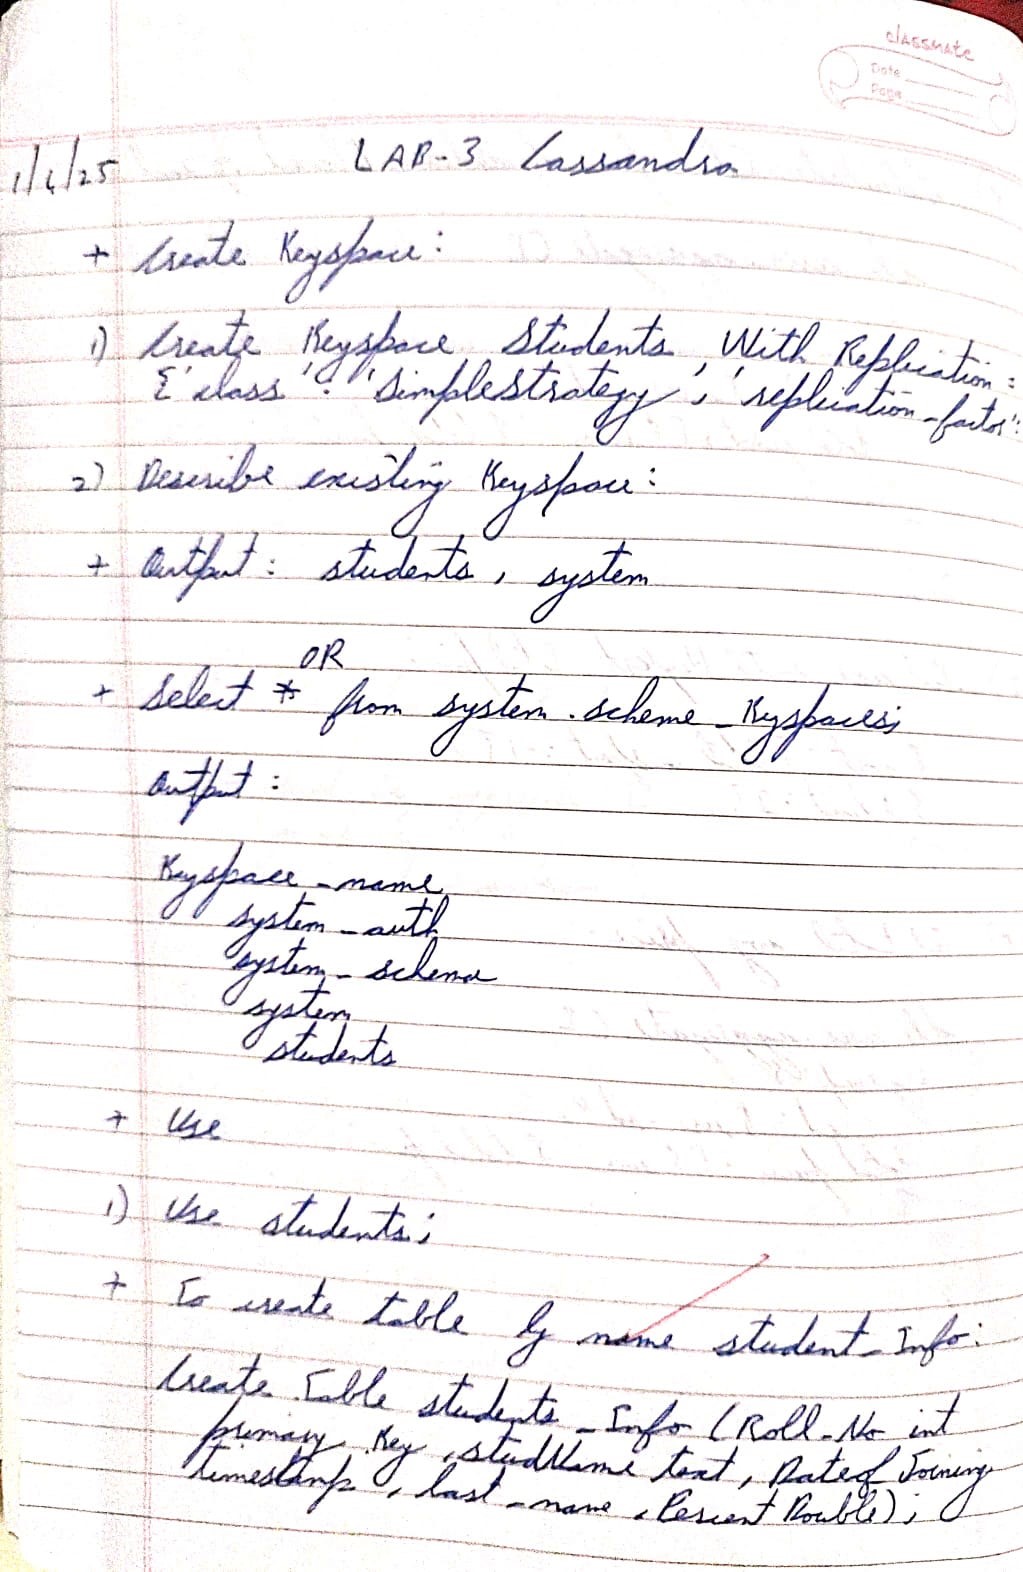 classmate
Date
Page
1/4/25
LAB-3 Cassandra
+ Create Keyspace:
1) Create Keyspace Students With Replication =
{'class' : 'SimpleStrategy', 'replication_factor':
2) Describe existing Keyspace:
+ Output : students, system
OR
+ Select * from system.scheme_Keyspaces;
Output :
Keyspace_name
system_auth
system_schema
system
students
+ Use
1) Use students;
+ To create table by name student_Info:
Create Table students_Info (Roll_No int
primary Key, studName text, Dateof Joining
timestamp, last_name, Percent Double);